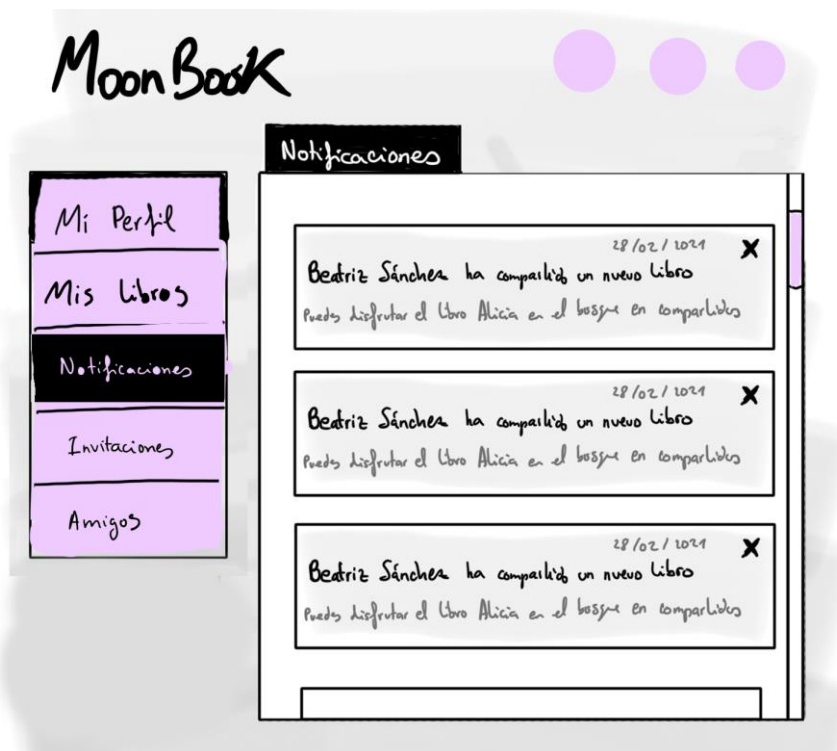 MoonBook
Notificaciones
Mi Perfil
Mis libros
Notificaciones
Invitaciones
Amigos
28/02/2021
Beatriz Sánchez ha compartido un nuevo libro
Puedes disfrutar el libro Alicia en el bosque en compartidos
28/02/2021
Beatriz Sánchez ha compartido un nuevo libro
Puedes disfrutar el libro Alicia en el bosque en compartidos
28/02/2021
Beatriz Sánchez ha compartido un nuevo libro
Puedes disfrutar el libro Alicia en el bosque en compartidos